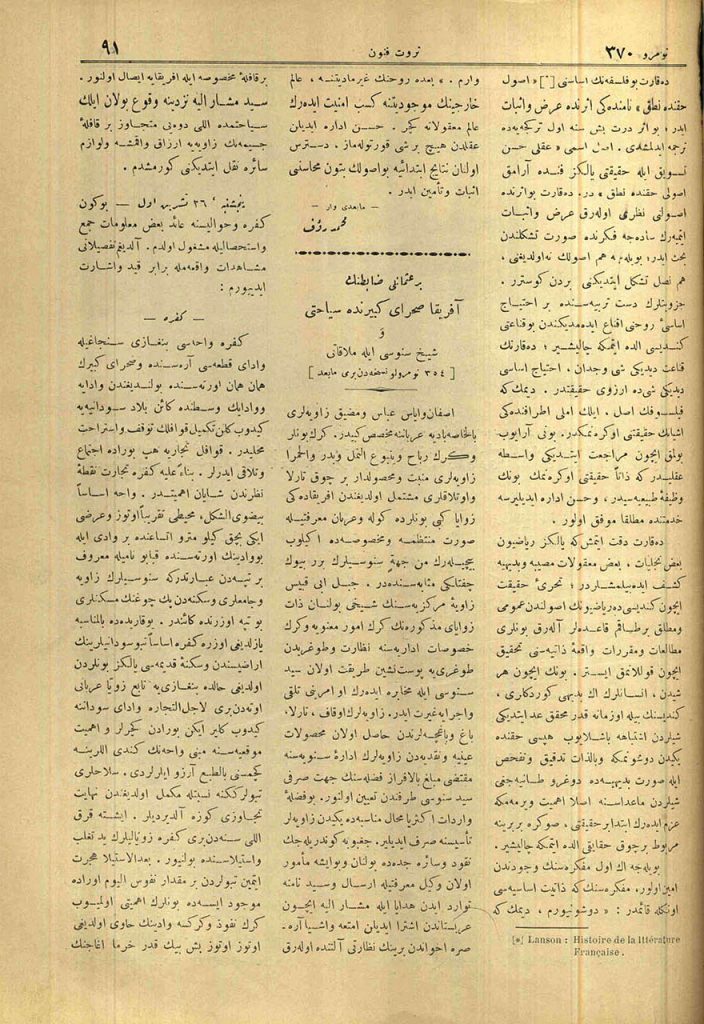 نومرو ٣٧٠
ثروت فنون
٩١
ده‌قارت بو فلسفه‌نك اساسنى [*] « اصول
حقنده نطق » نامنده‌كى اثرنده عرض و اثبات
ايدر ، بو اثر درت بش سنه اول تركجه‌يه‌ده
ترجمه ايدلمشدى . اصل اسمى « عقلى حسن
تسويق ايله حقيقتى يالكز فننده آرامق
اصولى حقنده نطق » در . ده‌قارت بو اثرنده
اصولنى نظرى اوله‌رق عرض و اثبات
ايتميه‌رك ساده‌جه فكرنده صورت تشكلندن
بحث ايدر ؛ بويله‌مه هم اصولك نه اولديغنى ،
هم نصل تشكل ايتديكنى بردن كوسترر .
جزويتلرك دست تربيه‌سنده بر احتياج
اساسئ روحنى اقناع ايده‌مديكندن بو قناعتى
كنديسى الده ايتمكه چاليشير ؛ ده‌قارتك
قناعت ديديكى شى وجدان ، احتياج اساسى
ديديكى شى‌ده آرزوى حقيقتدر . ديمك كه
فيلسوفك اصل ، ايلك املى اطرافنده‌كى
اشيانك حقيقتنى اوكرنمكدر . بونى آرايوب
بولمق ايچون مراجعت ايتديكى واسطه
عقلدر كه ذاتاً حقيقتى اوكرنمك بونك
وظيفهٔ طبيعيه‌سيدر ، و حسن اداره ايديليرسه
خدمتنده مطلقا موفق اولور .
ده‌قارت دقت ايتمش كه يالكز رياضيون
بعض تجليات ، بعض معقولات مصيبه و بديهيه
كشف ايده‌بيلمشلردر ؛ تحرئ حقيقت
ايچون كنديسى‌ده رياضيونك اصولندن عمومى
و مطلق بر طاقم قاعده‌لر آله‌رق بونلرى
مطالعات و مقررات واقعهٔ ذاتيه‌سنى تحقيق
ايچون قوللانمق ايستر . بونك ايچون هر
شيدن ، انسانلرك اك بديهى كوردكلرى ،
كنديسنك بيله او زمانه قدر محقق عد ايتديكى
شيلردن اشتباهه باشلايوب هپسى حقنده
يكيدن دوشونمكه و بالذات تدقيق و تفحص
ايله صورت بديهيه‌ده دوغرو طانيه‌جغى
شيلردن ماعداسنه اصلا اهميت ويرمه‌مكه
عزم ايده‌رك ابتدا بر حقيقتى ، صوكره بربرينه
مربوط بر چوق حقايقى الده ايتمكه چاليشير .
بويله‌جه اك اول مفكره‌سنك وجودندن
امين اولور . مفكره‌سنك كه ذاتيت اساسيه‌سى
اونكله قائمدر : « دوشونيورم ، ديمك كه
[*] Lanson : Histoire de la littérature
Française .
وارم . » بعده روحنك غير ماديتنه ، عالم
خارجينك موجوديتنه كسب امنيت ايده‌رك
عالم معقولاته كچر . حسن اداره ايديلن
عقلدن هيچ بر شى قورتوله‌ماز ، دسترس
اولنان نتايج ابتدائيه بو اصولك بتون محاسنى
اثبات و تأمين ايدر .
— مابعدى وار —
محمد رؤف
بر عثمانلى ضابطنك
آفريقا صحراى كبيرنده سياحتى
و
شيخ سنوسى ايله ملاقاتى
[ ٣٥٤ نومرولو نسخه‌دن برى مابعد ]
اصفان و اياس عباس و مضيق زاويه‌لرى
بالخاصه باديه عربانه مخصص كبيدر . كرك بونلر
و كرك رباح و ينبوع النخل و بدر و الحمرا
زاويه‌لرى منبت و محصولدار بر چوق تارلا
و اوتلاقلرى مشتمل اولديغندن افريقاده‌كى
زوايا كبى بونلرده كوله و عربان معرفتيله
صورت منتظمه و مخصوصه‌ده اكيلوب
بيچيله‌رك من جهةٍ سنوسيلرك برر بيوك
چفتلكى مثابه‌سنده‌در . جبل ابى قبيس
زاويهٔ مركزيه‌سنك شيخى بولنان ذات
زواياى مذكوره‌نك كرك امور معنويه و كرك
خصوصات اداريه‌سنه نظارت و طوغريدن
طوغرى‌يه پوست‌نشين طريقت اولان سيد
سنوسى ايله مخابره ايده‌رك او امرينى تلقى
و اجرايه غيرت ايدر . زاويه‌لرك اوقاف ، تارلا ،
باغ و باغچه‌لرندن حاصل اولان محصولات
عينيه و نقديه‌دن زاويه‌لرك ادارهٔ سنويه‌سنه
مقتضى مبلغ بالافراز فضله‌سنك جهت صرفى
سيد سنوسى طرفندن تعيين اولنور . بو فضلهٔ
واردات اكثريا محال مناسبه‌ده يكيدن زاويه‌لر
تأسيسنه صرف ايديلير . جغبوبه كوندريله‌جك
نقود و سائره جده‌ده بولنان و بو ايشه مأمور
اولان وكيل معرفتيله ارسال و سيد نامنه
توارد ايدن هدايا ايله مشار اليه ايچون
عربستاندن اشترا ايديلن امتعه و اشيا آره
صره اخواندن برينك نظارتى آلتنده اوله‌رق
بر قافلهٔ مخصوصه ايله افريقايه ايصال اولنور .
سيد مشار اليه نزدينه وقوع بولان ايلك
سياحتمده اللى دوه‌يى متجاوز بر قافلهٔ
جسيمه‌نك زاويه‌يه ارزاق و اقمشه و لوازم
سائره نقل ايتديكنى كورمشدم .
پنجشنبه ، ٢٦ تشرين اول — بوكون
كفره و حواليسنه عائد بعض معلومات جمع
و استحصاليله مشغول اولدم . آلديغم تفصيلاتى
مشاهدات واقعه‌مله برابر قيد و اشارت
ايدييورم :
— كفره —
كفره واحه‌سى بنغازى سنجاغيله
واداى قطعه‌سى آره‌سنده و صحراى كبيرك
همان همان اورته‌سنده بولنديغندن وادايه
و وادايك وسطنده كائن بلاد سودانيه‌يه
كيدوب كلن تكميل قوافلك توقف و استراحت
محليدر . قوافل تجاريه هپ بوراده اجتماع
و تلاقى ايدرلر . بناءً عليه كفره تجارت نقطهٔ
نظرندن شايان اهميتدر . واحه اساساً
بيضوى الشكل ، محيطى تقريباً اوتوز و عرضى
ايكى بچق كيلو مترو اتساعنده بر وادى ايله
بو وادينك اورته‌سنده قبابو ناميله معروف
بر تپه‌دن عبارتدر كه سنوسيلرك زاويه
و جامعلرى و سكنه‌دن پك چوغنك مسكنلرى
بو تپه اوزرنده كائندر . بو قاريده‌ده بالمناسبه
يازلديغى اوزره كفره اساساً تبو سودانيلرينك
اراضيسندن و سكنهٔ قديمه‌سى يالكز بونلردن
اولديغى حالده بنغازى‌يه تابع زويا عربانى
اوته‌دن برى لاجل التجاره واداى سوداننه
كيدوب كلير ايكن بورادن كچرلر و اهميت
موقعيه‌سنه مبنى واحه‌نك كندى اللرينه
كچمسنى بالطبع آرزو ايلرلردى . سلاحلرى
تبولرككنه نسبتله مكمل اولديغندن نهايت
تجاوزى كوزه آلديرديلر . ايشته قرق
اللى سنه‌دن برى كفره زويالپلرك يد تغلب
و استيلاسنده بولنيور . بعد الاستيلا هجرت
ايتمين تبولردن بر مقدار نفوس اليوم اوراده
موجود ايسه‌ده بونلرك اهميتى اولميوب
كرك نفوذ و كركسه وادينك حاوى اولديغى
اوتوز اوتوز بش بيك قدر خرما اغاجنك